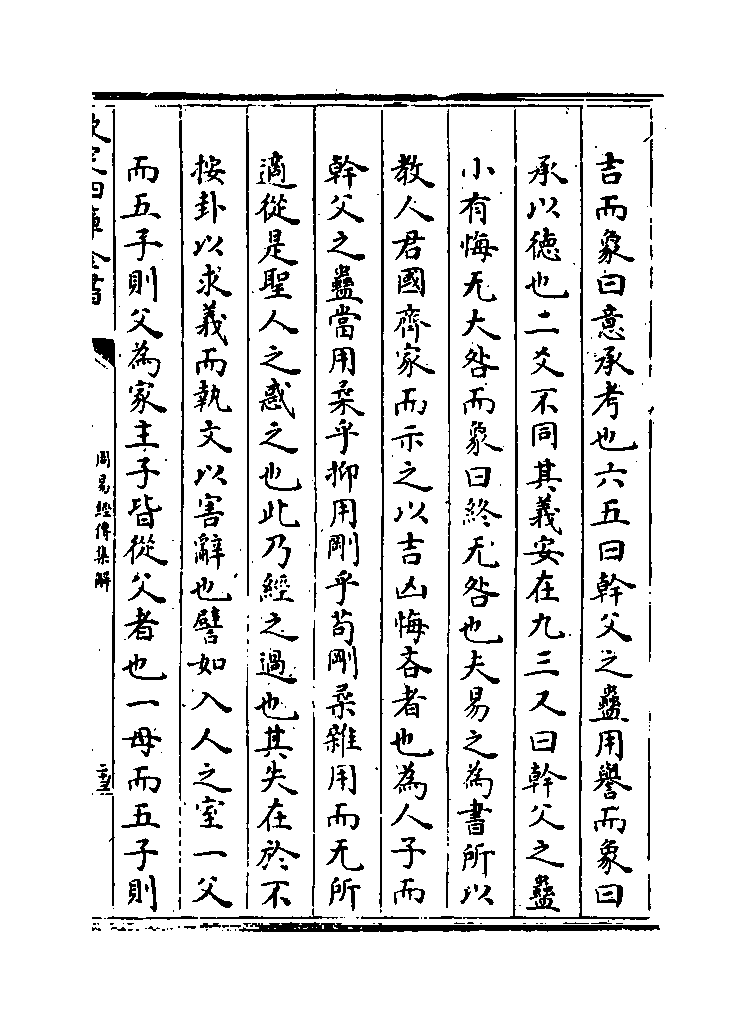 吉而象曰意承考也六五曰幹父之蠱用譽而象曰
承以德也二爻不同其義安在九三又曰幹父之蠱
小有悔无大咎而象曰終无咎也夫易之為書所以
教人君國齊家而示之以吉凶悔吝者也為人子而
幹父之蠱當用柔乎抑用剛乎苟剛柔雜用而无所
適從是聖人之惑之也此乃經之過也其失在於不
按卦以求義而執文以害辭也譬如入人之室一父
而五子則父為家主子皆從父者也一母而五子則
欽定四庫全書
周易經傳集解